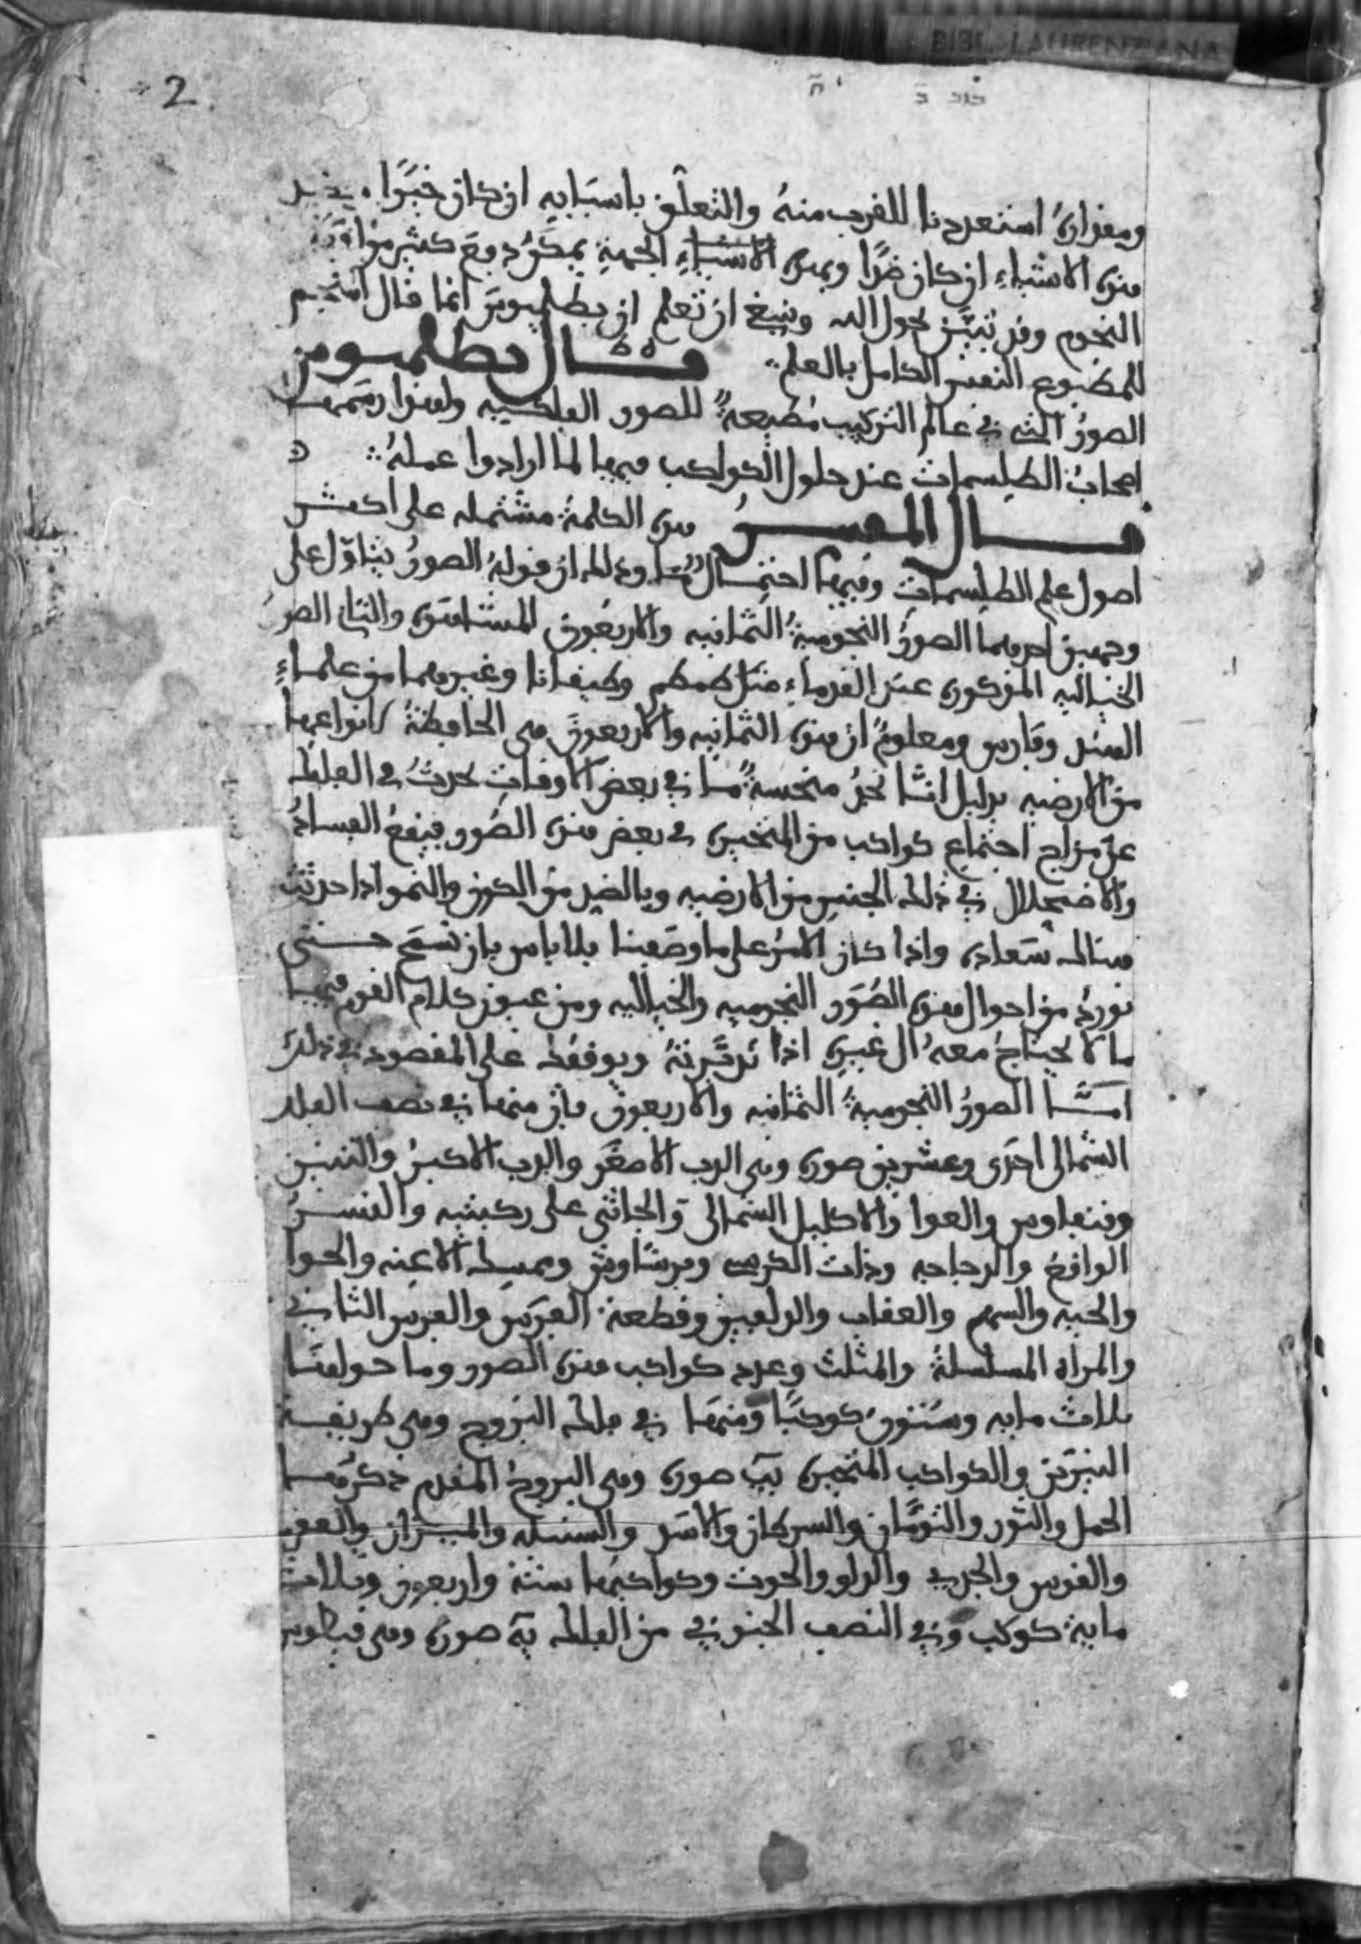 BIBL. LAURENZIANA
2
ومقداره استعددنا للقرب منه والتعلق باسبابه ان كان خيرا
هذه الاشياء ان كان ضرا وبهذه الاشياء الجهة
النجوم وقد تبين بحول الله وينبغي ان تعلم ان بطلميوس انما قال
للمطبوع النفس الكامل بالعلم قال بطلميوس
الصور التي في عالم التركيب مطيعة للصور الفلكية ولهذا رسمها
اصحاب الطلسمات عند حلول الكواكب فيها لما ارادوا عمله
قال المفسر هذه الكلمة مشتملة على اكثر
اصول علم الطلسمات وفيها احتمال وذلك ان قوله الصور يتاول على
وجهين احدهما الصور النجومية الثمانية والاربعون المشاهدة والثاني الصور
الخيالية المذكورة عند القدماء مثل طمطم وغيرهما من علماء
الهند وفارس ومعلوم ان هذه الثمانية والاربعون هي الحافظة لانواعها
من الارضية بدليل انا نجد منحسة ما في بعض الاوقات تحدث في الفلك
عن مزاج اجتماع كواكب من المتحيرة في بعض هذه الصور فيقع الفساد
والاضمحلال في ذلك الجنس من الارضية وبالضد من الكون والنمو اذا حدثت
هنالك سعادة واذا كان الامر على ما وصفنا فلا باس بان نسمح حتى
نورد من احوال هذه الصور النجومية والخيالية ومن عيون كلام القوم فيها
ما لا يحتاج معه الى غيره اذا تدبرته ويوقفك على المقصود في ذلك
اما الصور النجومية الثمانية والاربعون فان منها في نصف الفلك
الشمالي احدى وعشرين صورة وهي الدب الاصغر والدب الاكبر والتنين
وقيفاوس والعوا والاكليل الشمالي والجاثي على ركبتيه والنسر
الواقع والدجاجة وذات الكرسي وبرشاوش وممسك الاعنة والحوا
والحية والسهم والعقاب والدلفين وقطعة الفرس والفرس الثاني
والمراة المسلسلة والمثلث وعدد كواكب هذه الصور وما حولها
ثلاث ماية وستون كوكبا ومنها في فلك البروج وهي طريقة
النيرين والكواكب المتحيرة يب صورة وهي البروج المقدم ذكرها
الحمل والثور والتومان والسرطان والاسد والسنبلة والميزان والعقرب
والقوس والجدي والدلو والحوت وكواكبها ستة واربعون وثلاث
ماية كوكب وفي النصف الجنوبي من الفلك يه صورة وهي قيطوس